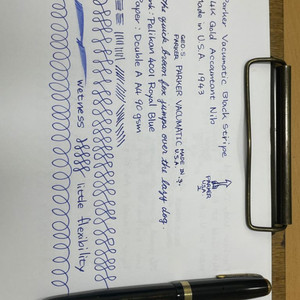 Parker Vacumatic Black stripe
14K Gold Accountant Nib
Made in U.S.A 1943
PARKER
GEO. S.
PARKER PARKER VACUMATIC MADE IN
U.S.A.
the quick brown fox jumps over the lazy dog
Ink: Pelikan 4001 Royal Blue
Paper: Double A A4 90 gsm
wetness little flexibility